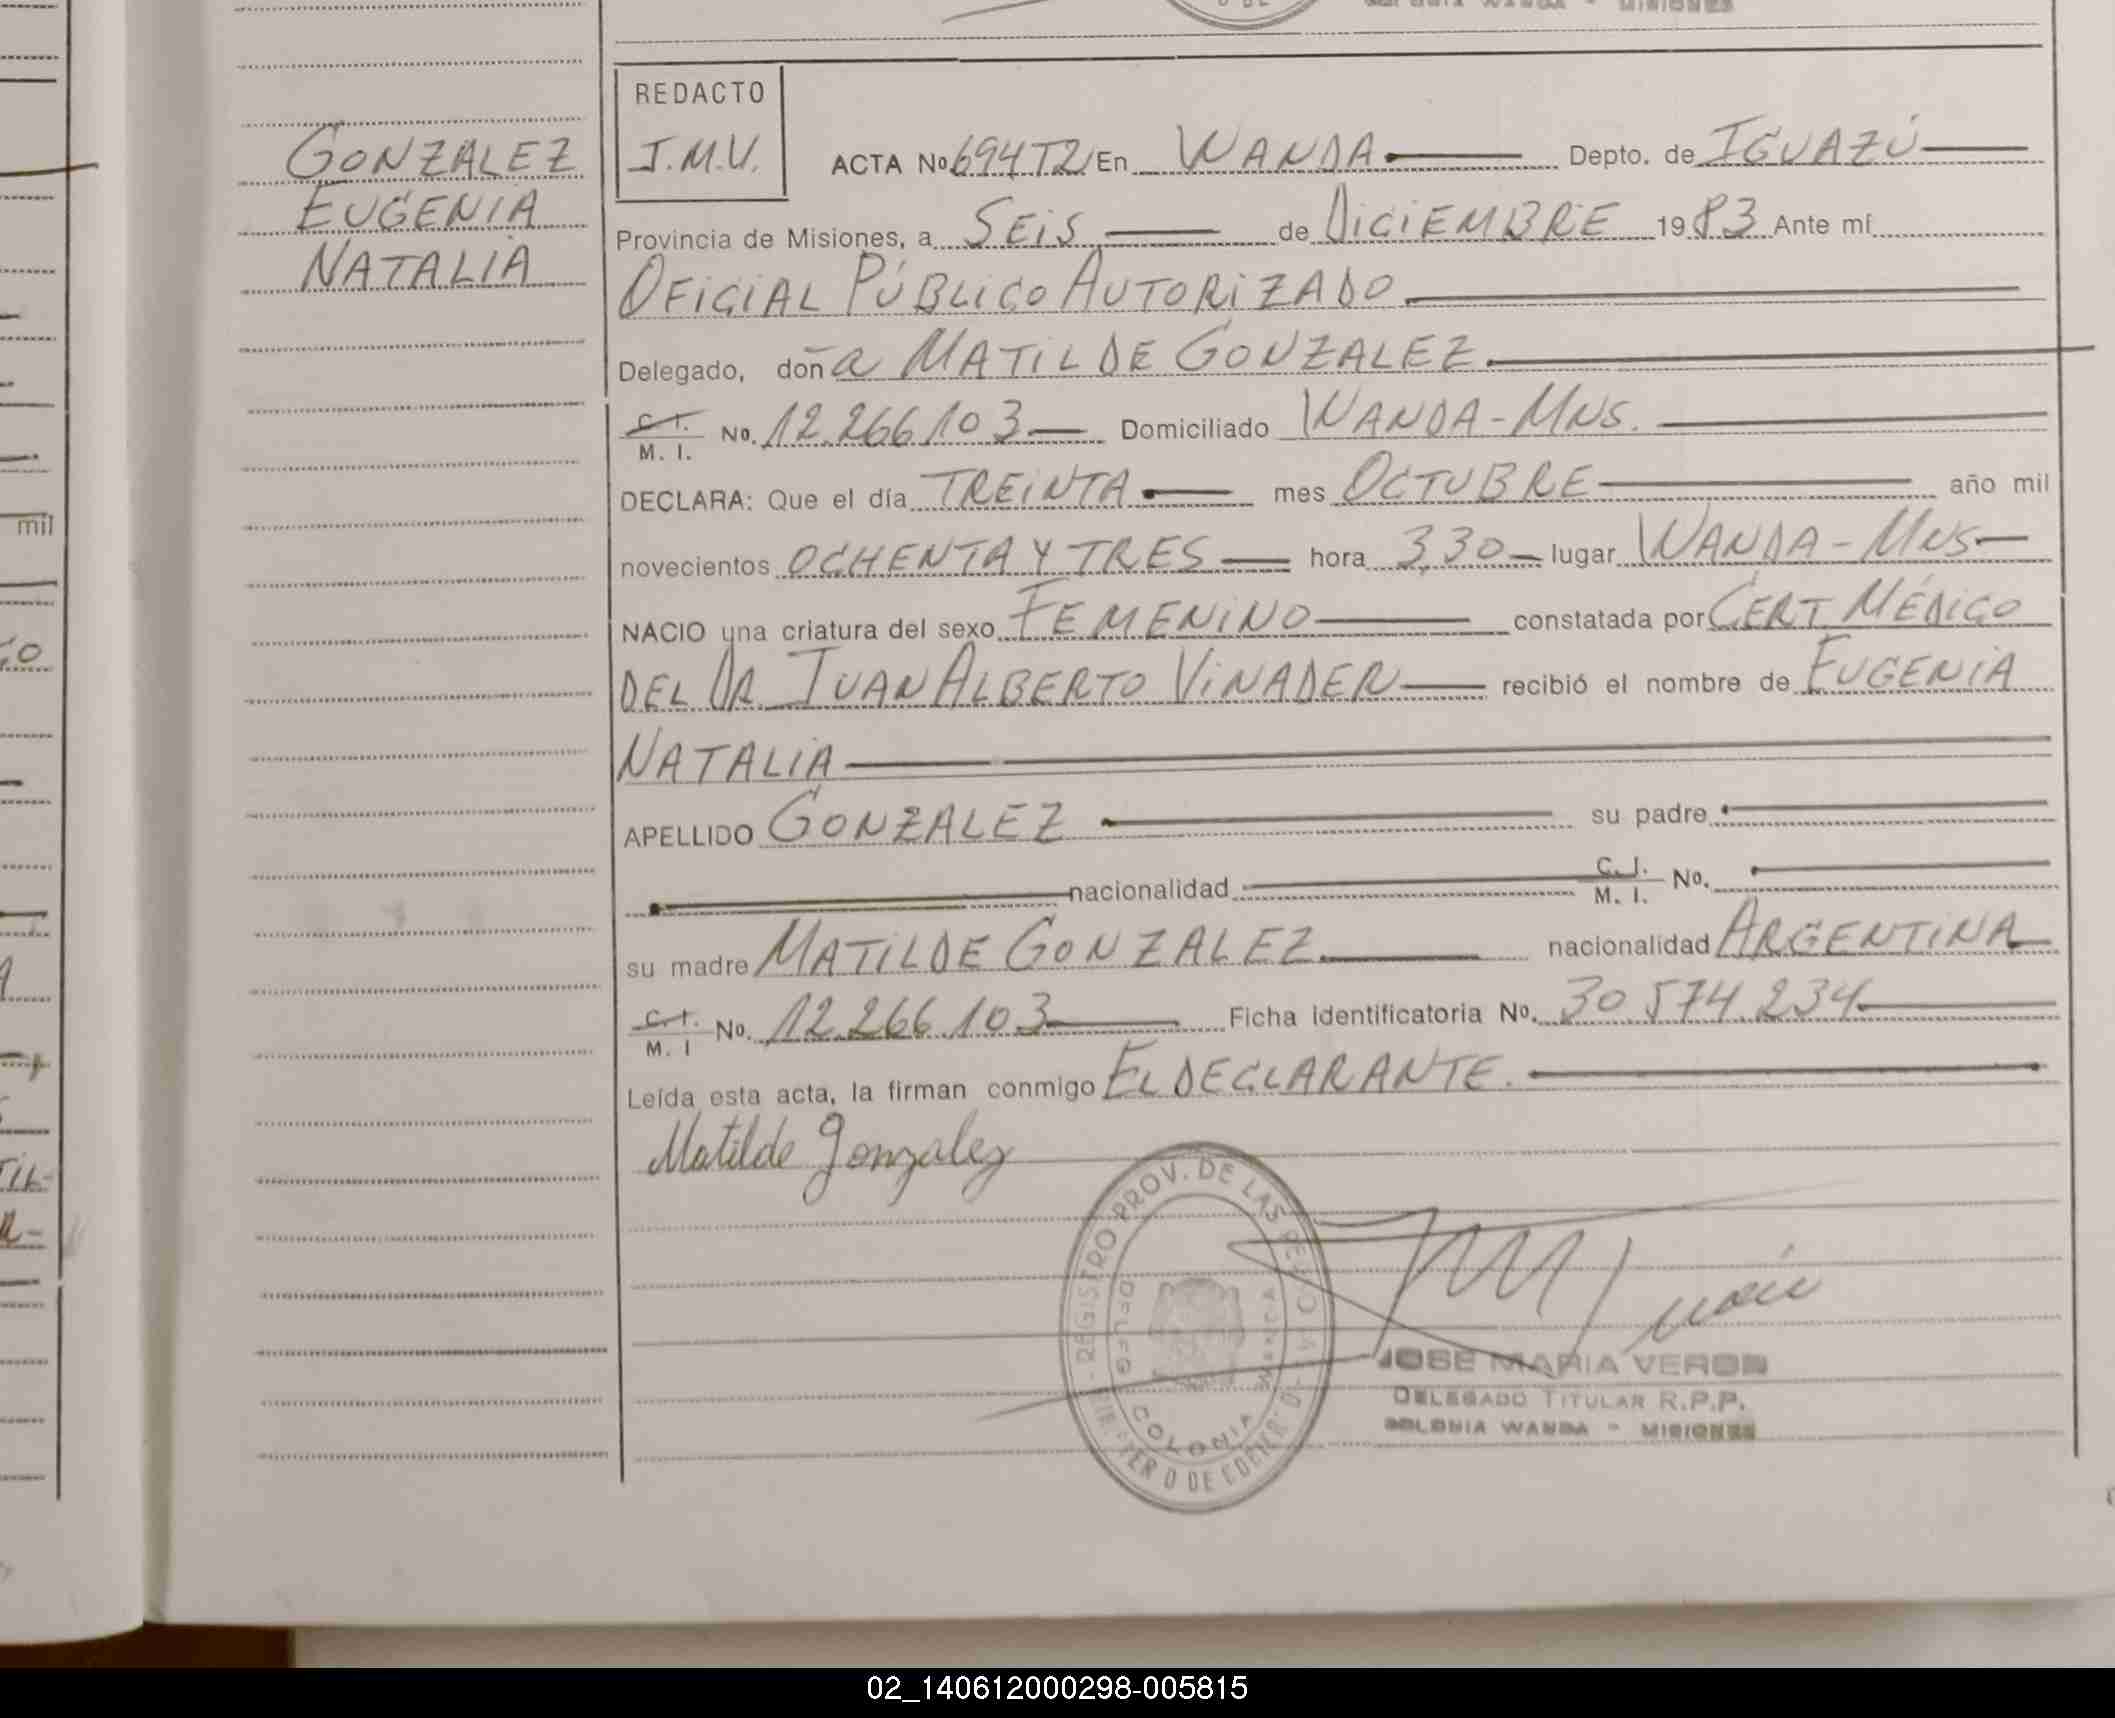 GONZALEZ
EUGENIA
NATALIA
REDACTO
J.M.V.
ACTA No 694T2 En WANDA Depto. de IGUAZÚ
Provincia de Misiones, a SEIS de DICIEMBRE 1983 Ante mí
OFICIAL PÚBLICO AUTORIZADO
Delegado, doña MATILDE GONZALEZ
C. I.
M. I. No. 12.266.103 Domiciliado WANDA-MNS.
DECLARA: Que el día TREINTA mes OCTUBRE año mil
novecientos OCHENTA Y TRES hora 3,30 lugar WANDA-MNS
NACIO una criatura del sexo FEMENINO constatada por CERT MÉDICO
DEL DR. JUAN ALBERTO VINADER recibió el nombre de EUGENIA
NATALIA
APELLIDO GONZALEZ su padre
nacionalidad C. I.
M. I. No.
su madre MATILDE GONZALEZ nacionalidad ARGENTINA
C. I.
M. I No. 12.266.103 Ficha identificatoria No. 30 574.234
Leída esta acta, la firman conmigo EL DECLARANTE.
Matilde Gonzalez
REGISTRO PROV. DE LAS
COLONIA
WANDA
JOSE MARIA VERON
DELEGADO TITULAR R.P.P.
COLONIA WANDA - MISIONES
mil
02_140612000298-005815